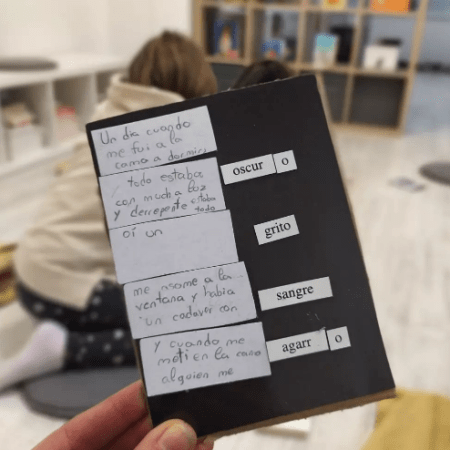 Un dia cuando
me fui a la
cama a dormir,
y todo estaba
con mucha luz
y derrepente estaba
todo
oscur o
oí un
grito
me asome a la
ventana y habia
un cadaver con
sangre
y cuando me
meti en la cama
alguien me
agarr o